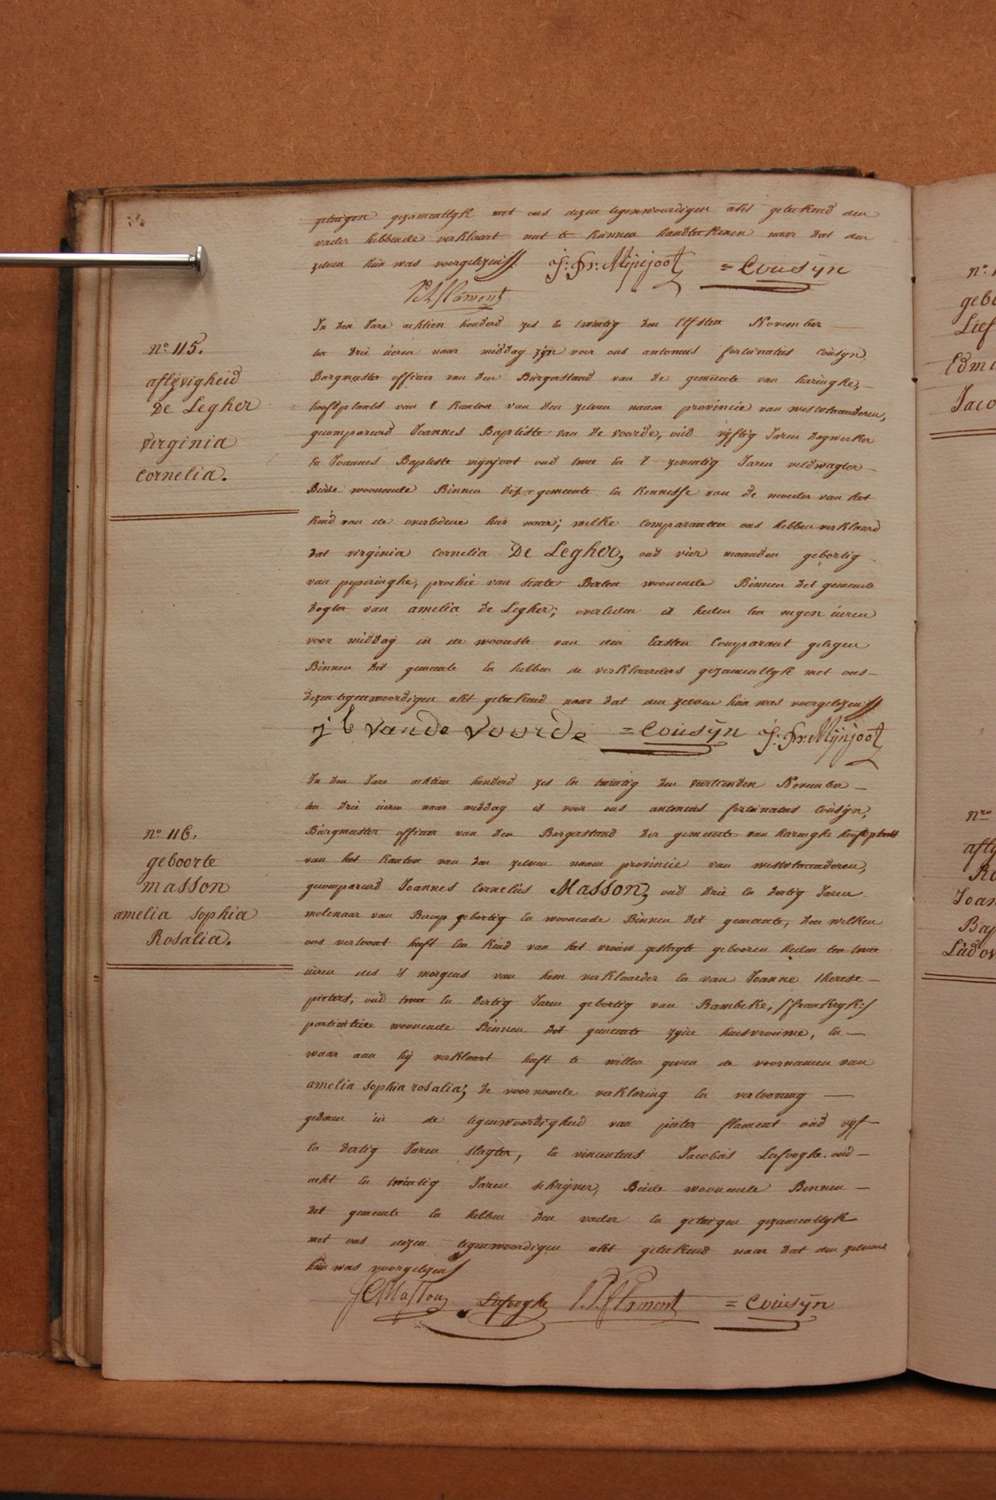 getuigen gezamentlijk met ons dezen tegenwoordigen akt geteekend den
vader hebbende verklaart niet te konnen handteekenen naer dat den
zelven hun was voorgelezen
J: Fr: Mijnjoot = Cousÿn
P J Flament
n° 115.
aflijvigheid
De Legher
virginia
cornelia.
In den Jare achtien honderd zes en twintig den Elfsten November
ten drie uren naer middag zijn voor ons antonius fortunatus cousÿn,
Borgmeester officier van den Burgerstand van de gemeente van haringhe,
hooftplaats van t kanton van den zelven naem provincie van westvlaanderen,
gecompareerd Joannes Baptiste van de voorde, oud vijftig Jaren dagwerker
en Joannes Baptiste mijnjoot oud twee en t zeventig Jaren veldwagter
Beide woonende Binnen dese gemeente en kennesse van de moeder van het
kind van de overledene hier naer; welke comparanten ons hebben verklaard
dat virginia cornelia De Legher, oud vier maanden gebortig
van poperinghe, prochie van sinte Berten woonende Binnen det gemeente
dogter van amelia de Legher; overleden is heden ten negen uren
voor middag in de wooninste van den Lasten Comparant gelegen
Binnen det gemeente en hebben de verklaarders gezamentlijk met ons
dezen tegenwoordigen akt geteekend naer dat den zelven hun was voorgelezen
j b vande Voorde = Cousÿn J: Fr: Mijnjoot
n° 116.
geboorte
masson
amelia sophia
Rosalia.
In den Jare achtien honderd zes en twintig den veertienden November
ten drie uren naer middag is voor ons antonius fortunatus cousÿn,
Burgmeester officier van den Borgerstand der gemeente van haringhe hooftplaats
van het kanton van den zelven naem provincie van westvlaanderen,
gecompareerd Joannes cornelius Masson, oud drie en dertig Jaren
molenaar van Beroep gebortig en woonende Binnen det gemeente, den welken
ons vertoont heeft een kind van het vrouw geslagte geboren heden ten twee
uren des s morgens van hem verklaarder en van Joanne therese
pieters, oud twee en dertig Jaren gebortig van Bambeke, /:frankryk:/
particuliere woonende Binnen det gemeente zyne huisvrouwe, en
waar aan hij verklaart heeft te willen geven de voornamen van
amelia sophia rosalia; de voornoemde verklaring en vertooning
gedaen in de tegenwoordigheid van pieter flament oud vyf
en dertig Jaren slagter, en vincentius Jacobus Lefevghe oud
acht en twintig Jaren schrijver, Beide woonende Binnen
det gemeente en hebben den vader en getuigen gezamentlijk
met ons dezen tegenwoordigen akt geteekend naer dat den zelven
hun was voorgelezen
J C Masson Lefevghe P. J. Flament = Cousÿn